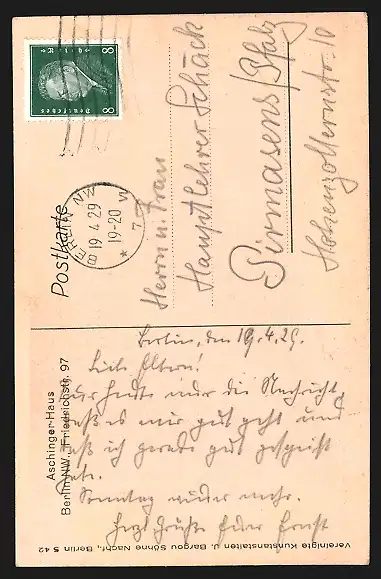 Deutsches Reich
8 8
Postkarte
BERLIN NW
19 4 29
19-20 V
* 7
Herrn u. Frau
Hauptlehrer Schäck
Pirmasens/Pfalz
Hohenzollernstr. 10
Aschinger-Haus
Berlin NW, Friedrichstr. 97
Berlin, den 19.4.29.
Liebe Eltern!
Für heute nur die Nachricht,
daß es mir gut geht und
daß ich gerade gut gespeist
habe.
Sonntag wieder mehr.
Herzl. Grüße Euer Ernst
Vereinigte Kunstanstalten J. Bargou Söhne Nachf., Berlin S 42